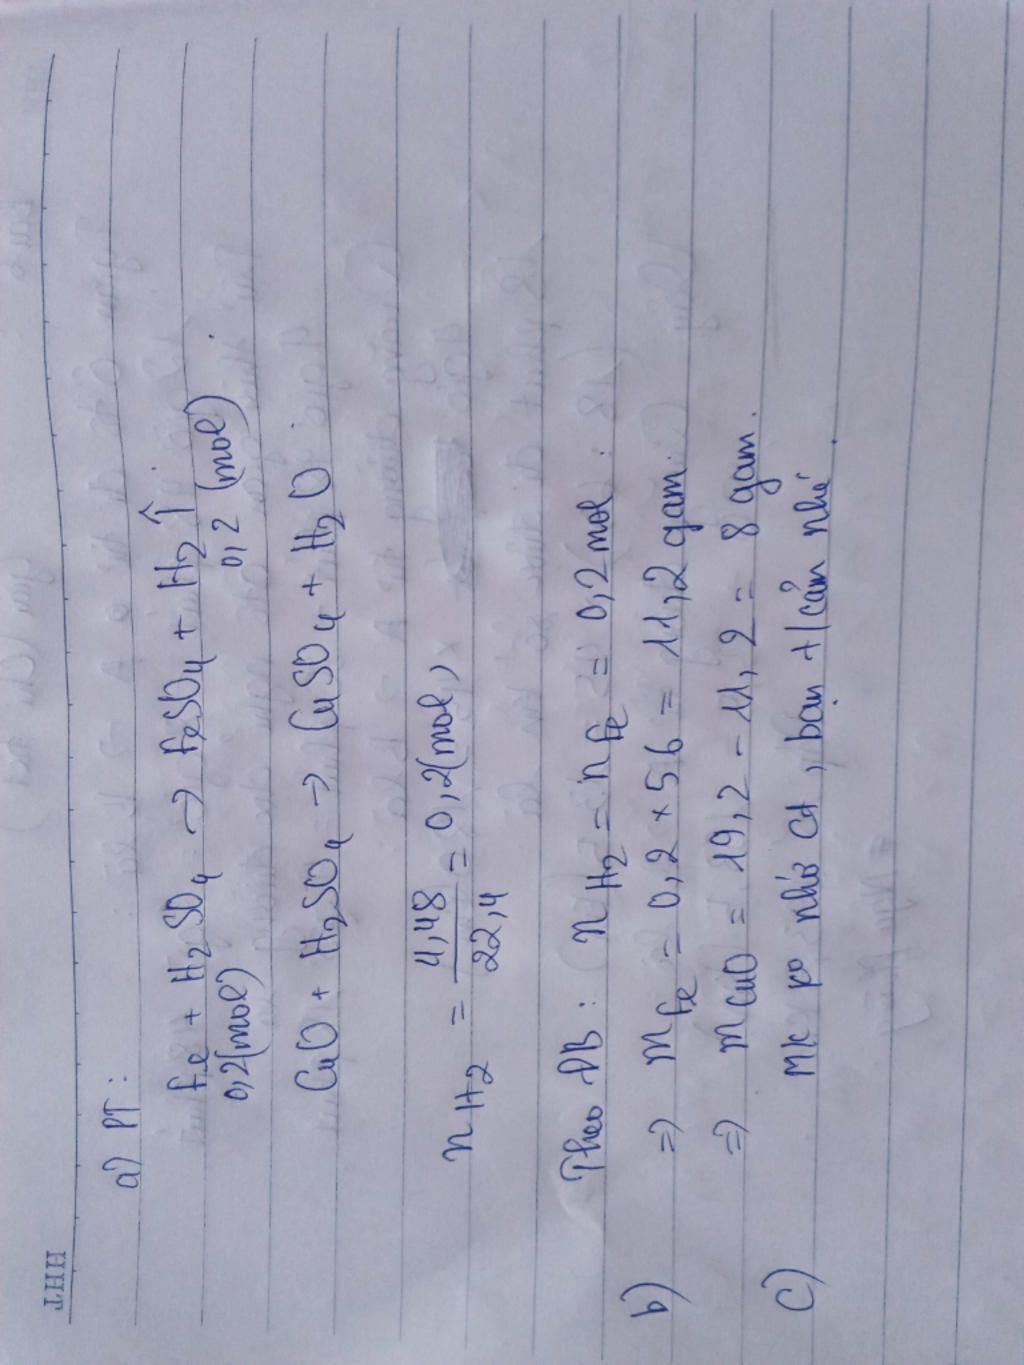 HHT
a) PT:
Fe + H2SO4 → FeSO4 + H2↑
0,2(mol) 0,2 (mol)
CuO + H2SO4 → CuSO4 + H2O
nH2 = 4,48/22,4 = 0,2(mol)
Theo ĐB: nH2 = nFe = 0,2 mol.
b) => mFe = 0,2 × 56 = 11,2 gam.
=> mCuO = 19,2 - 11,2 = 8 gam.
c) Mk ko nhớ ct, bạn t/cảm nhé.